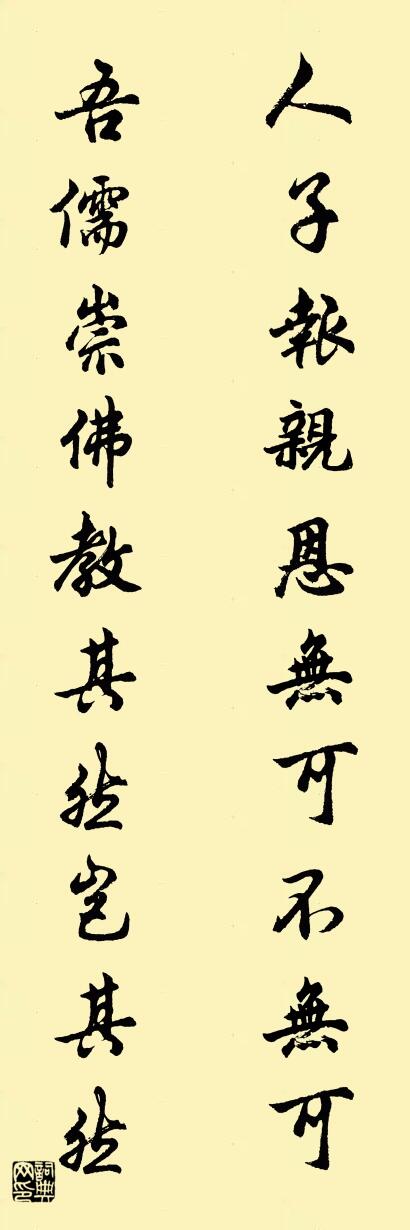 人子報親恩無可不無可
吾儒崇佛教其然豈其然
詞典网印